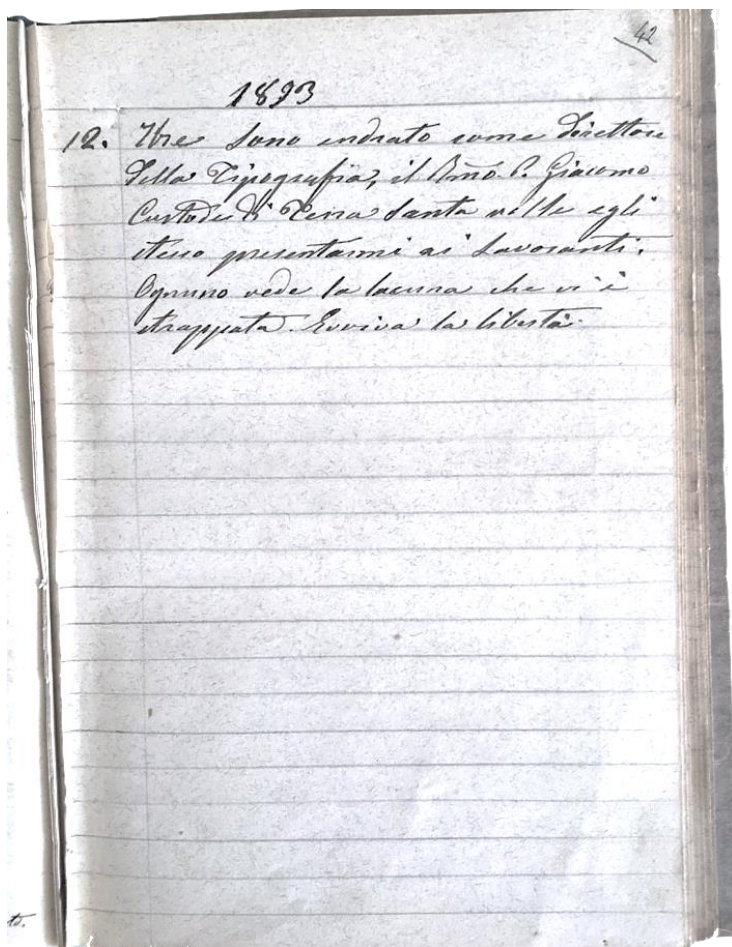 42
1893
12. sono endrato come direttore
della Tipografia, il P. Giacomo
Custode di Terra Santa volle egli
stesso presentarmi ai lavoranti.
Ognuno vede la lacuna che vi è
strappata. Evviva la libertà.
to.